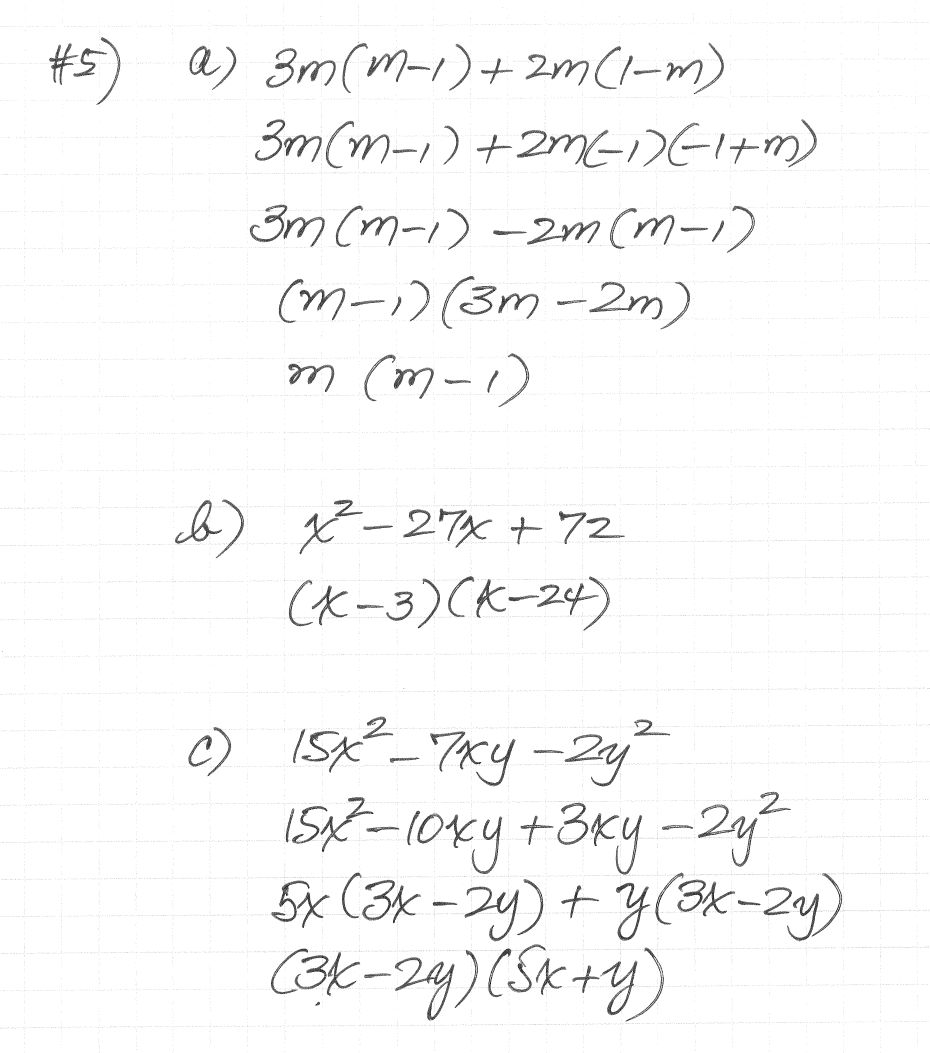 #5) a) 3m(m-1)+2m(1-m)
3m(m-1)+2m(-1)(-1+m)
3m(m-1)-2m(m-1)
(m-1)(3m-2m)
m (m-1)
b) x²-27x+72
(x-3)(x-24)
c) 15x²-7xy-2y²
15x²-10xy+3xy-2y²
5x(3x-2y)+y(3x-2y)
(3x-2y)(5x+y)